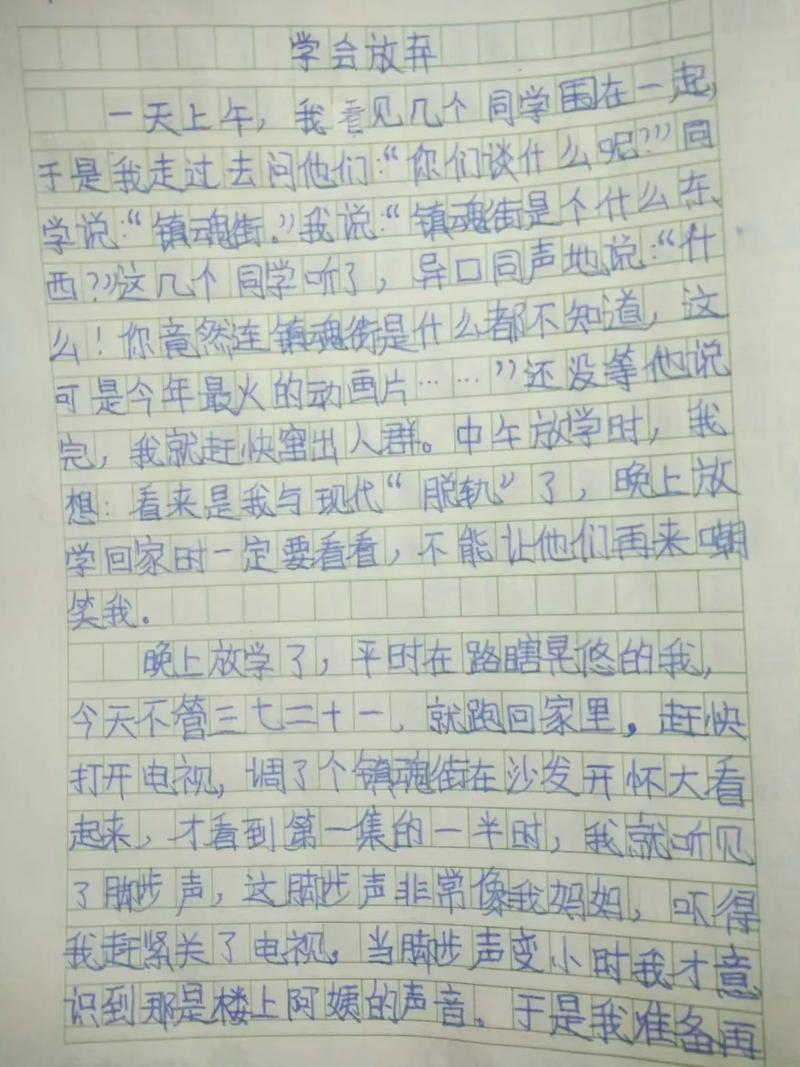 学会放弃
一天上午，我看见几个同学围在一起，
于是我走过去问他们：“你们谈什么呢？”同
学说：“镇魂街。”我说：“镇魂街是个什么东
西？”这几个同学听了，异口同声地说：“什
么！你竟然连镇魂街是什么都不知道，这
可是今年最火的动画片……”还没等他说
完，我就赶快窜出人群。中午放学时，我
想：看来是我与现代“脱轨”了，晚上放
学回家时一定要看看，不能让他们再来嘲
笑我。
晚上放学了，平时在路瞎晃悠的我，
今天不管三七二十一，就跑回家里，赶快
打开电视，调了个镇魂街在沙发开怀大看
起来，才看到第一集的一半时，我就听见
了脚步声，这脚步声非常像我妈妈，吓得
我赶紧关了电视。当脚步声变小时我才意
识到那是楼上阿姨的声音。于是我准备再